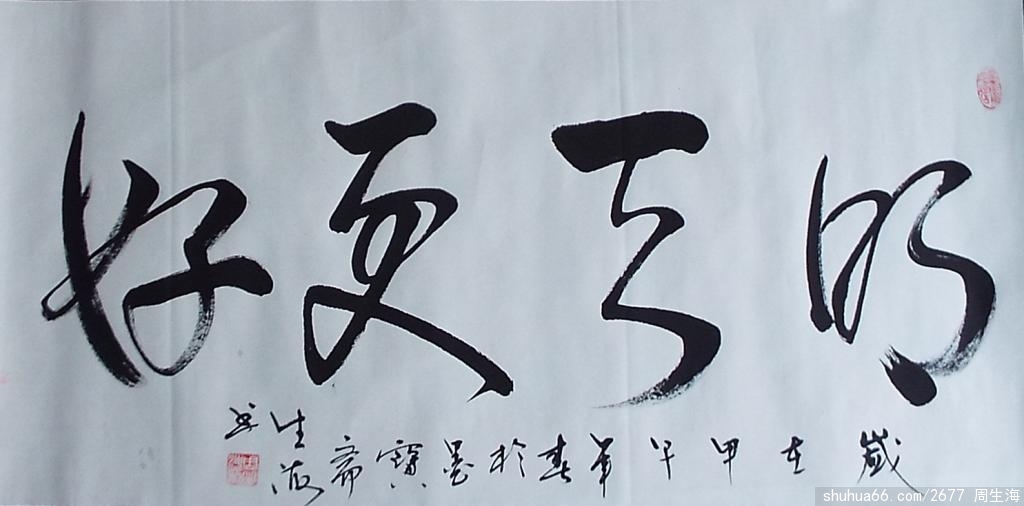 明天更好
歲在甲午年春於墨寶齋
生海
书
shuhua66.com/2677 周生海